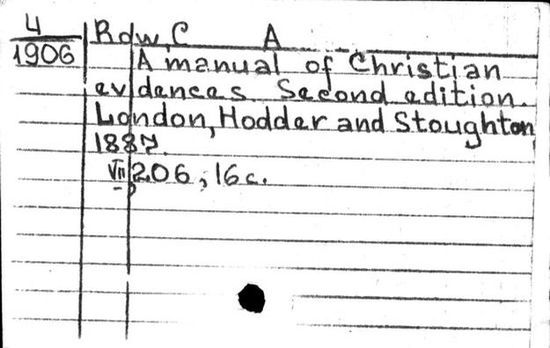 4
1906
Row, C A
A manual of Christian
evidences. Second edition.
London, Hodder and Stoughton,
1887.
VII, 206, 16 c.